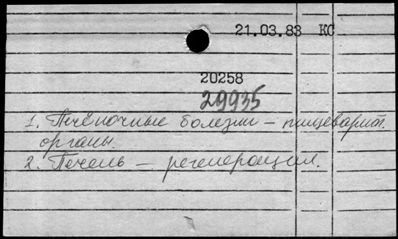 21.03.83 КС
20258
29935
1. Печёночные болезни – пищеварит.
органы.
2. Печень – регенерация.